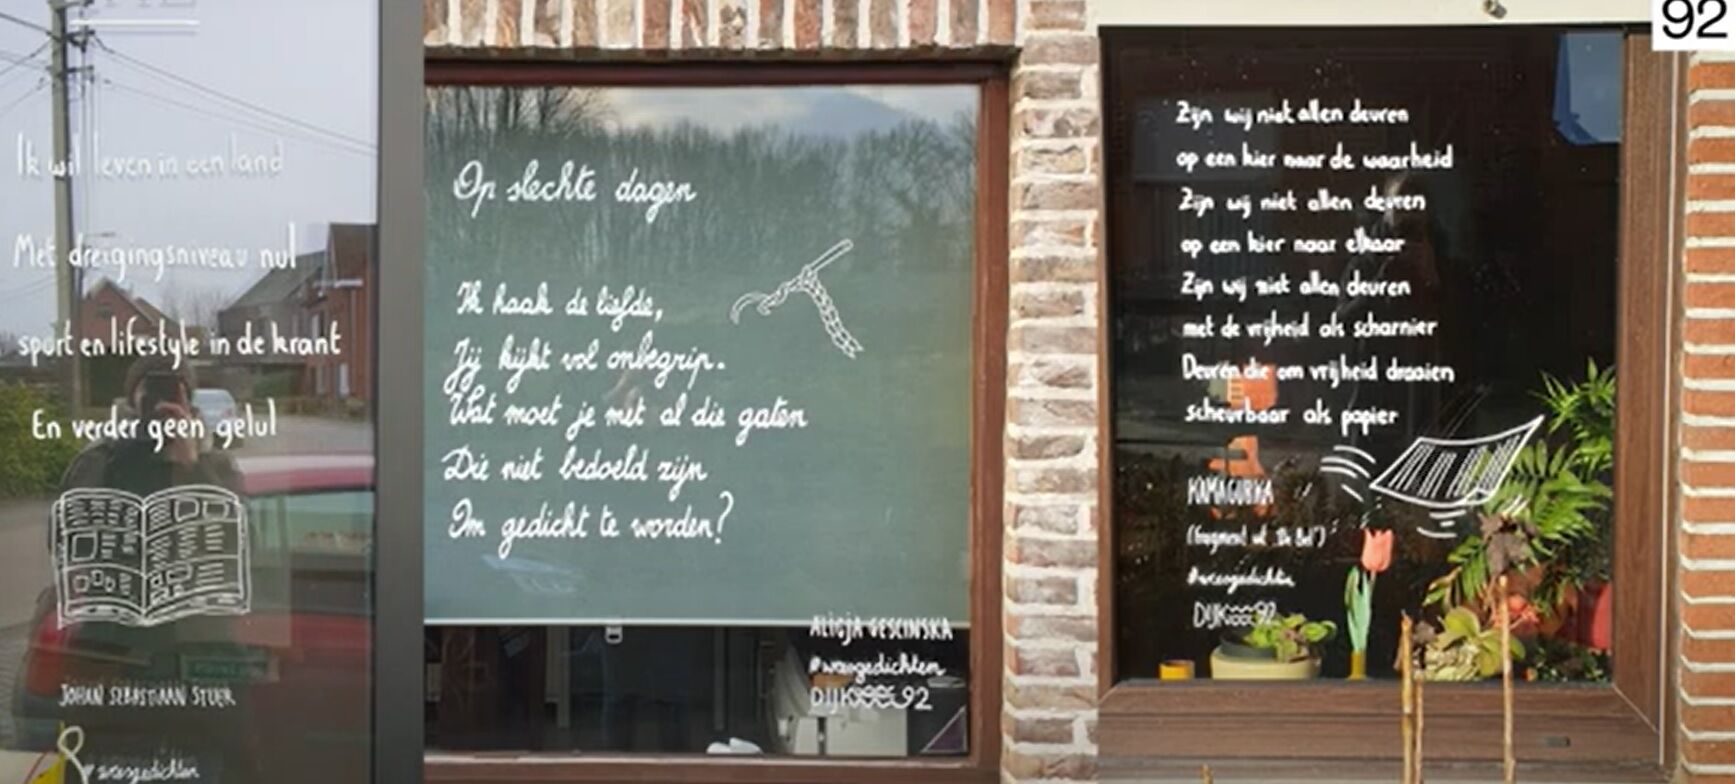 Ik wil leven in een land
Met dreigingsniveau nul
sport en lifestyle in de krant
En verder geen gelul
JOHAN SEBASTIAAN STUER
#wasgedichten
Op slechte dagen
Ik haak de liefde,
Jij kijkt vol onbegrip.
Wat moet je met al die gaten
Die niet bedoeld zijn
Om gedicht te worden?
ALICJA GESCINSKA
#wasgedichten
DIJK92
92
Zijn wij niet allen deuren
op een kier naar de waarheid
Zijn wij niet allen deuren
op een kier naar elkaar
Zijn wij niet allen deuren
met de vrijheid als scharnier
Deuren die om vrijheid draaien
scheurbaar als papier
KAMAGURKA
(fragment uit
DIJK92